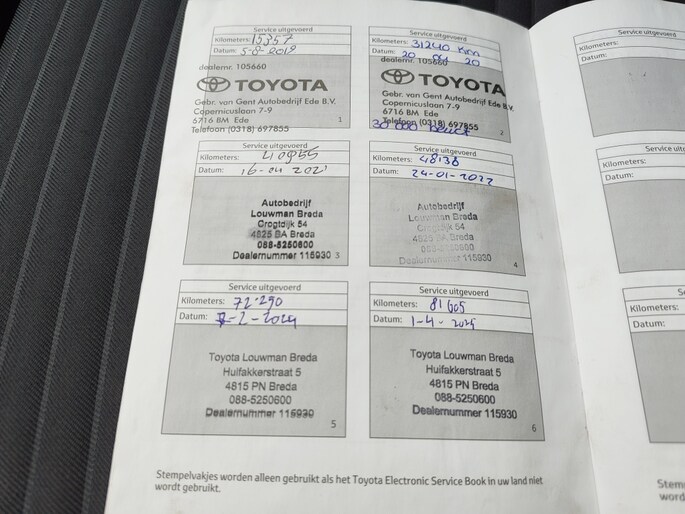 Service uitgevoerd
Kilometers: 15357
Datum: 5-8-2019
dealernr. 105660
TOYOTA
Gebr. van Gent Autobedrijf Ede B.V.
Copernicuslaan 7-9
6716 BM Ede
Telefoon (0318) 697855
1
Service uitgevoerd
Kilometers: 31240 Km
Datum: 20 04 20
dealernr. 105660
TOYOTA
Gebr. van Gent Autobedrijf Ede B.V.
Copernicuslaan 7-9
6716 BM Ede
Telefoon (0318) 697855
30 000 beurt
2
Service uitgevoerd
Kilometers: 40955
Datum: 16-04 2021
Autobedrijf
Louwman Breda
Crogtdijk 54
4825 BA Breda
088-5250600
Dealernummer 115930
3
Service uitgevoerd
Kilometers: 48138
Datum: 24-01-2022
Autobedrijf
Louwman Breda
Crogtdijk 54
4825 BA Breda
088-5250600
Dealernummer 115930
4
Service uitgevoerd
Kilometers: 72.290
Datum: -2-2024
Toyota Louwman Breda
Huifakkerstraat 5
4815 PN Breda
088-5250600
Dealernummer 115930
5
Service uitgevoerd
Kilometers: 81605
Datum: 1-4-2025
Toyota Louwman Breda
Huifakkerstraat 5
4815 PN Breda
088-5250600
Dealernummer 115930
6
Stempelvakjes worden alleen gebruikt als het Toyota Electronic Service Book in uw land niet
wordt gebruikt.
Service uitgevoerd
Kilometers:
Datum:
Service uitg
Kilometers:
Datum:
Se
Kilometers:
Datum:
Stem
word